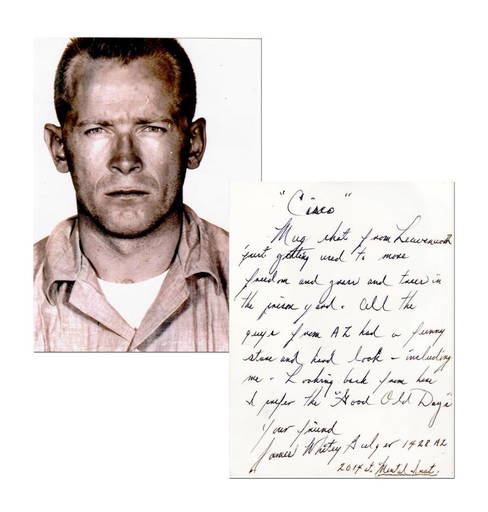 "Cisco"
Mug shot from Leavenworth
just getting used to more
freedom and grass and trees in
the prison yard. All the
guys from AZ had a funny
stare and hard look - including
me - Looking back from here
I prefer the "Good Old Days"
Your friend
James Whitey Bulger 1428 AZ
2014 Mental Inst.